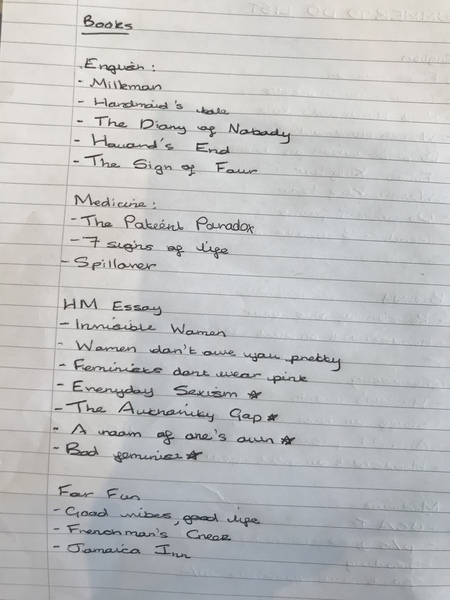 Books
English:
- Milkman
- Handmaid's tale
- The Diary of Nobody
- Howard's End
- The Sign of Four
Medicine:
- The Patient Paradox
- 7 signs of life
- Spillover
HM Essay
- Invisible Women
- Women don't owe you pretty
- Feminists dont wear pink
- Everyday Sexism ☆
- The Authority Gap ☆
- A room of one's own ☆
- Bad feminist ☆
For Fun
- Good vibes, good life
- Frenchman's Creek
- Jamaica Inn